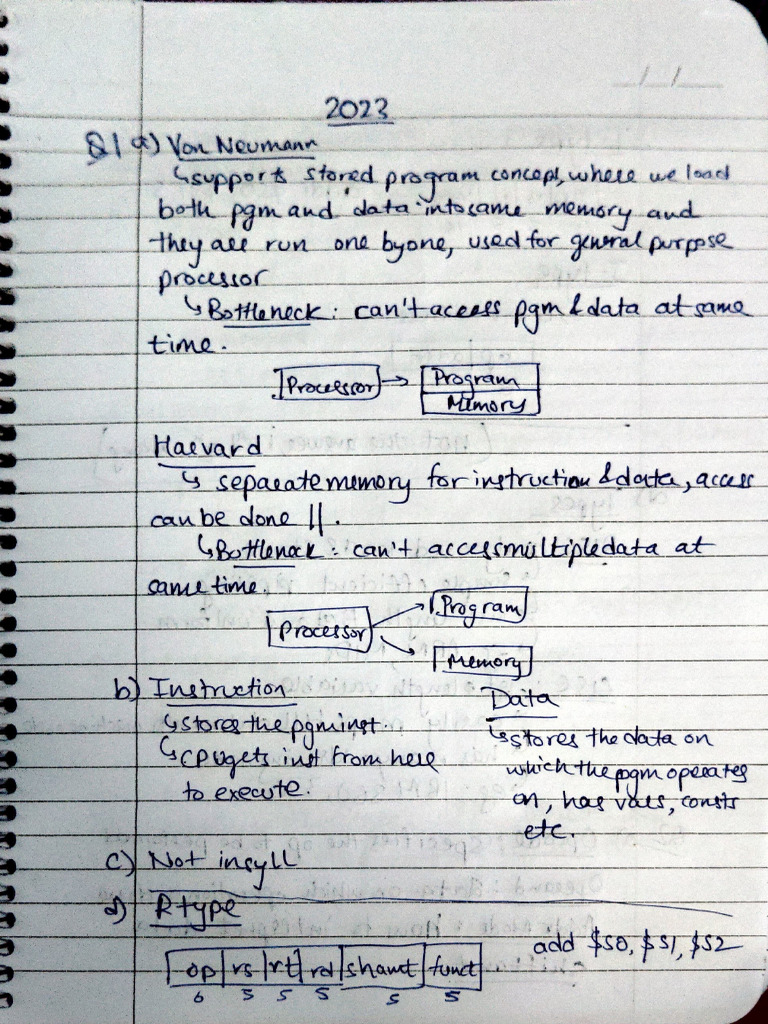 2023
Q1 a) Von Neumann
↳ supports stored program concept, where we load
both pgm and data into same memory and
they are run one by one, used for general purpose
processor
↳ Bottleneck : can't access pgm & data at same
time.
Processor → Program
Memory
Harvard
↳ separate memory for instruction & data, access
can be done ||.
↳ Bottleneck : can't access multiple data at
same time.
Program
Processor
Memory
b) Instruction
↳ stores the pgm inst.
↳ CPU gets inst from here
to execute.
Data
↳ stores the data on
which the pgm operates
on, has vars, consts
etc.
c) Not in syll
d) R type
op rs rt rd shamt funct
6 5 5 5 5 5
add $S0, $S1, $S2